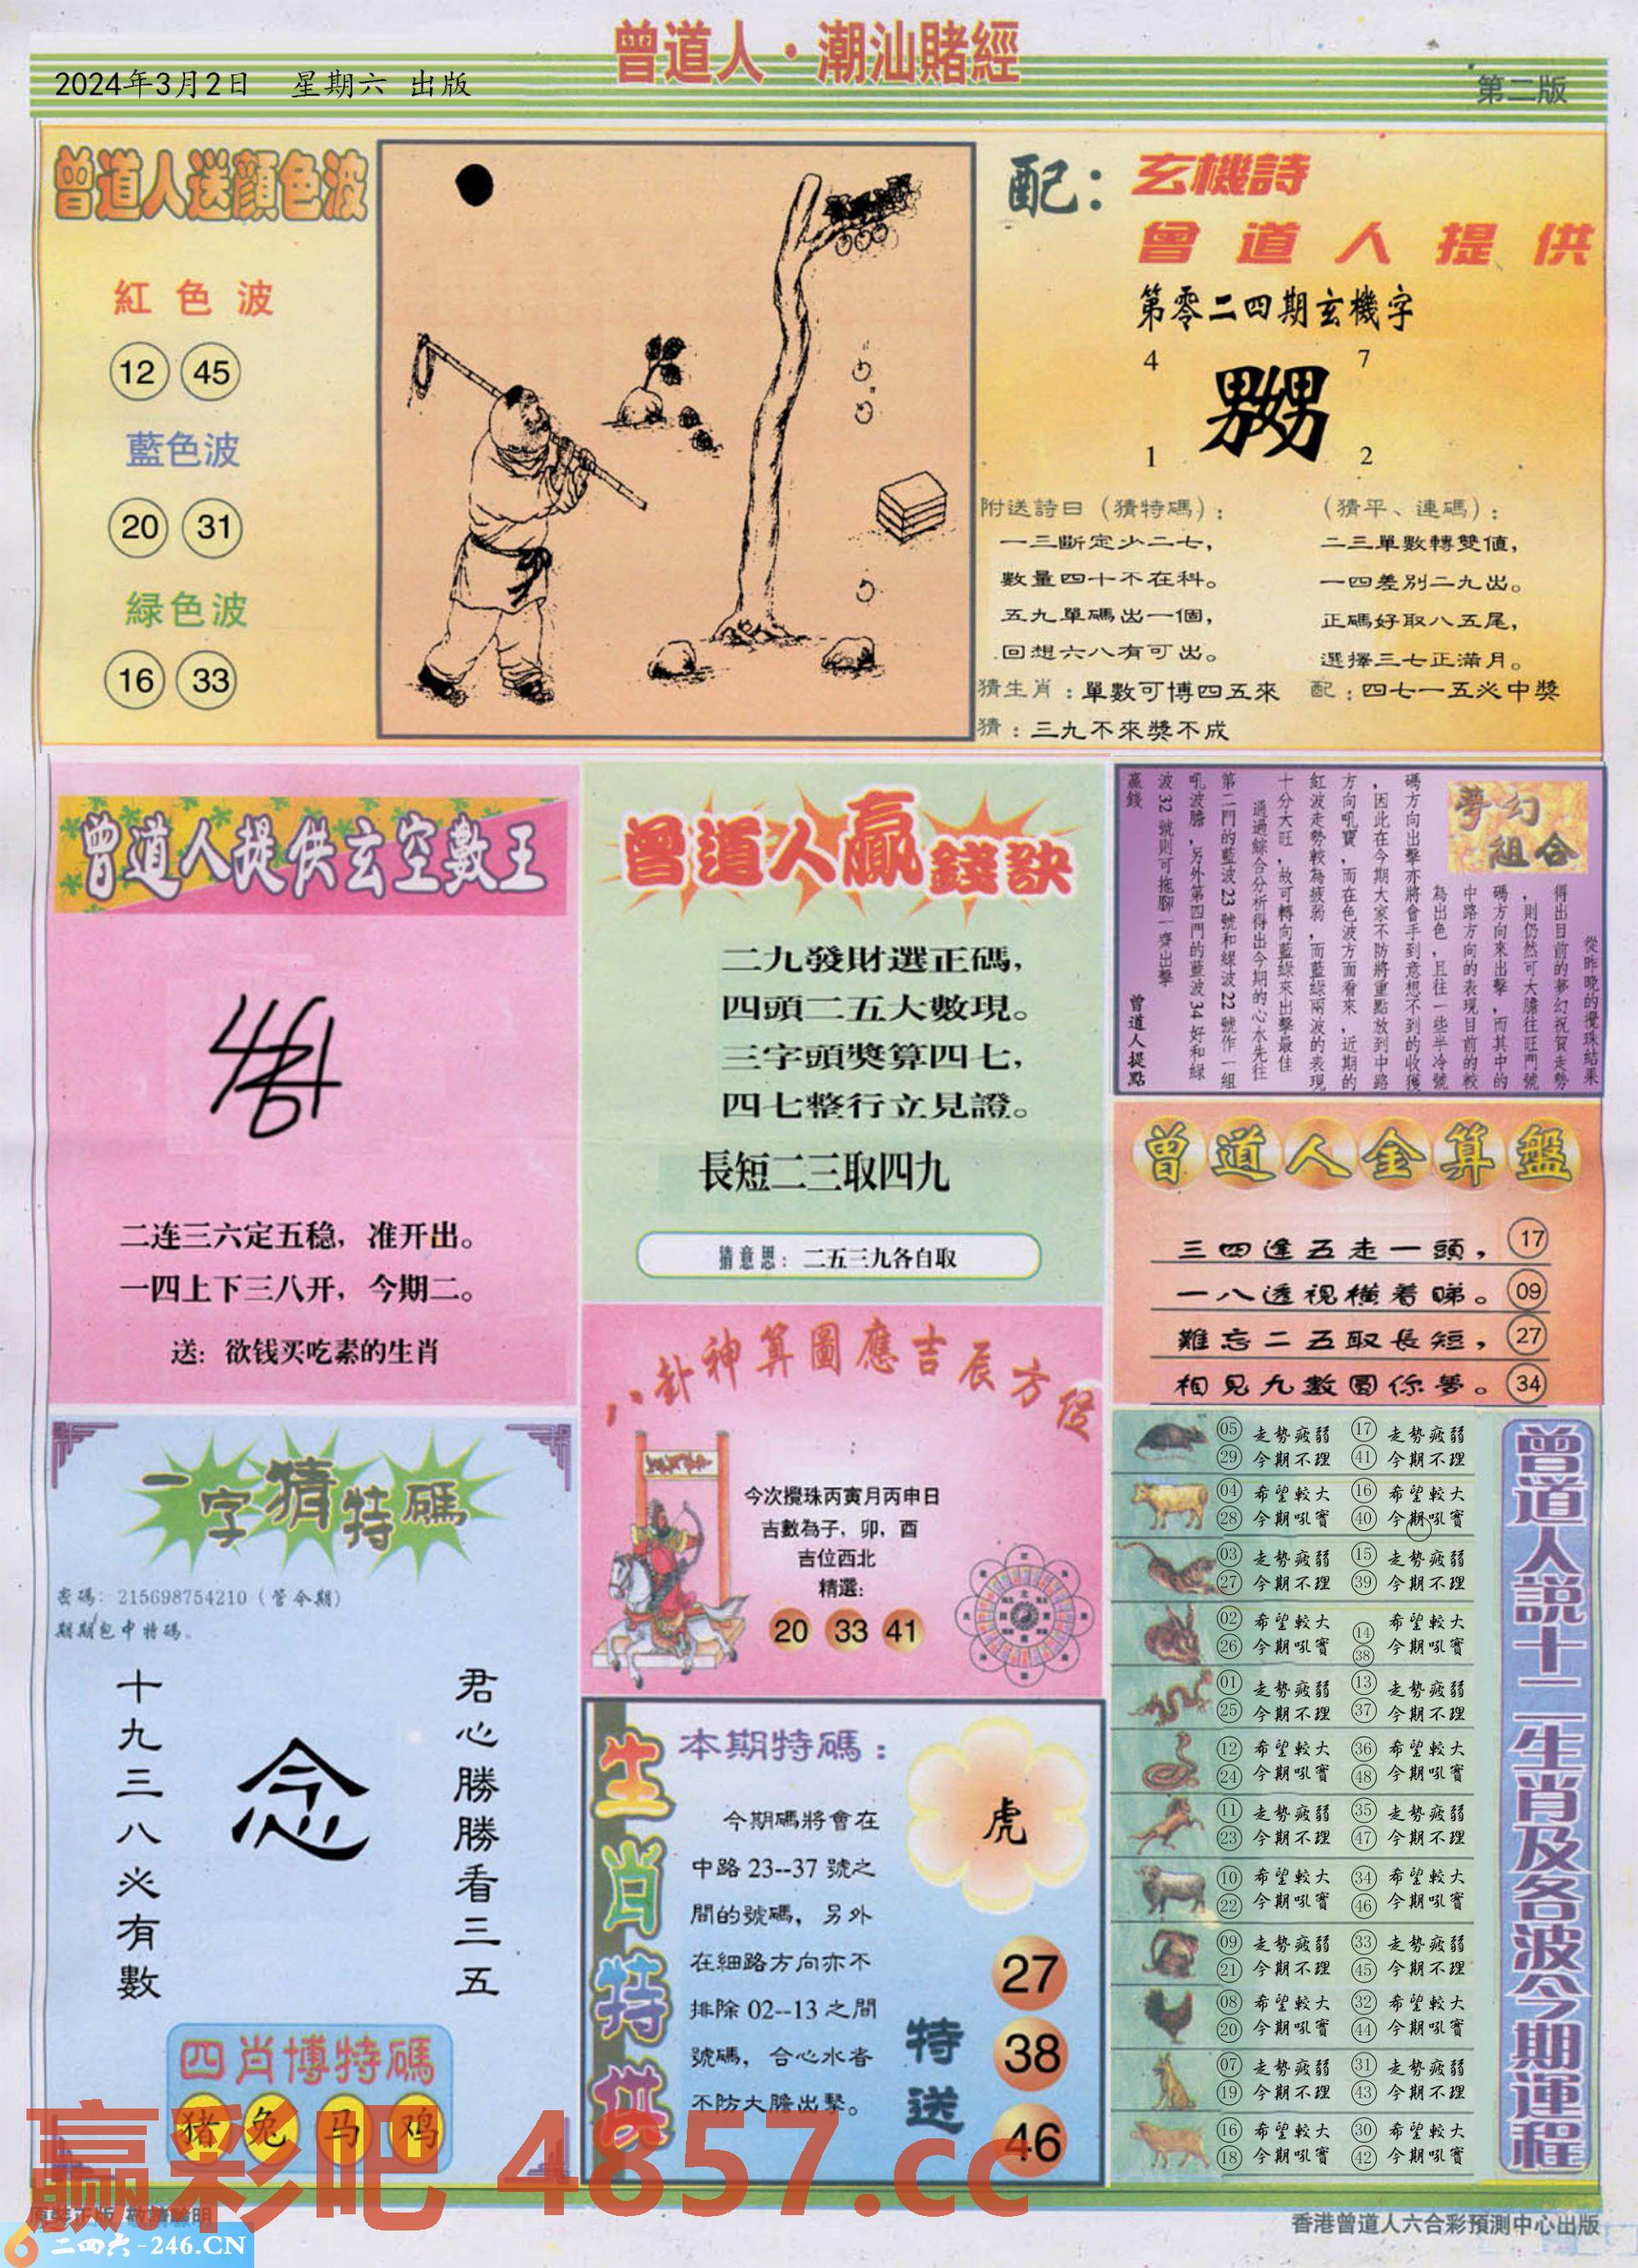 曾道人·潮汕賭經
2024年3月2日 星期六 出版
第二版
曾道人送顔色波
紅色波
12 45
藍色波
20 31
緑色波
16 33
配：玄機詩
曾道人提供
第零二四期玄機字
4 7
嬲
1 2
附送詩曰（猜特碼）：
一三斷定少二七，
數量四十不在科。
五九單碼出一個，
回想六八有可出。
（猜平、連碼）：
二三單數轉雙值，
一四差別二九出。
正碼好取八五尾，
選擇三七正滿月。
猜生肖：單數可博四五來 配：四七一五必中獎
猜：三九不來獎不成
曾道人提供玄空數王
二连三六定五稳，准开出。
一四上下三八开，今期二。
送：欲钱买吃素的生肖
曾道人贏錢訣
二九發財選正碼，
四頭二五大數現。
三字頭獎算四七，
四七整行立見證。
長短二三取四九
猜意思：二五三九各自取
夢幻組合
從昨晚的攪珠結果
得出目前的夢幻祝賀走勢
，則仍然可大膽往旺門號
碼方向來出擊，而其中的
中路方向的表現目前的較
為出色，且往一些半冷號
碼方向出擊亦將會手到意想不到的收獲
，因此在今期大家不防將重點放到中路
方向吼寶，而在色波方面看來，近期的
紅波走勢較為疲弱，而藍綠兩波的表現
十分大旺，故可轉向藍綠來出擊最佳
通過綜合分析得出今期的心水先往
第二門的藍波23號和綠波22號作一組
吼波膽，另外第四門的藍波34好和綠
波32號則可拖腳一齊出擊
贏錢
曾道人提點
曾道人金算盤
三四逢五走一頭， 17
一八透視橫着睇。 09
難忘二五取長短， 27
相見九數圓你夢。 34
八卦神算圖應吉辰方位
：
今次攪珠丙寅月丙申日
吉數為子，卯，酉
吉位西北
精選：
20 33 41
一字猜特碼
密碼：215698754210（管今期）
期期包中特碼。
君心勝勝看三五
念
十九三八必有數
四肖博特碼
猪 兔 马 鸡
生肖特供
本期特碼：
虎
今期碼將會在
中路23--37號之
間的號碼，另外
在細路方向亦不
排除02--13之間
號碼，合心水者
不防大膽出擊。
特送
27
38
46
曾道人說十二生肖及各波今期運程
05 走勢疲弱 17 走勢疲弱
29 今期不理 41 今期不理
04 希望較大 16 希望較大
28 今期吼實 40 今期吼實
03 走勢疲弱 15 走勢疲弱
27 今期不理 39 今期不理
02 希望較大 14 希望較大
26 今期吼實 38 今期吼實
01 走勢疲弱 13 走勢疲弱
25 今期不理 37 今期不理
12 希望較大 36 希望較大
24 今期吼實 48 今期吼實
11 走勢疲弱 35 走勢疲弱
23 今期不理 47 今期不理
10 希望較大 34 希望較大
22 今期吼實 46 今期吼實
09 走勢疲弱 33 走勢疲弱
21 今期不理 45 今期不理
08 希望較大 32 希望較大
20 今期吼實 44 今期吼實
07 走勢疲弱 31 走勢疲弱
19 今期不理 43 今期不理
16 希望較大 30 希望較大
18 今期吼實 42 今期吼實
赢彩吧 4857.cc
二四六-246.CN
香港曾道人六合彩預測中心出版